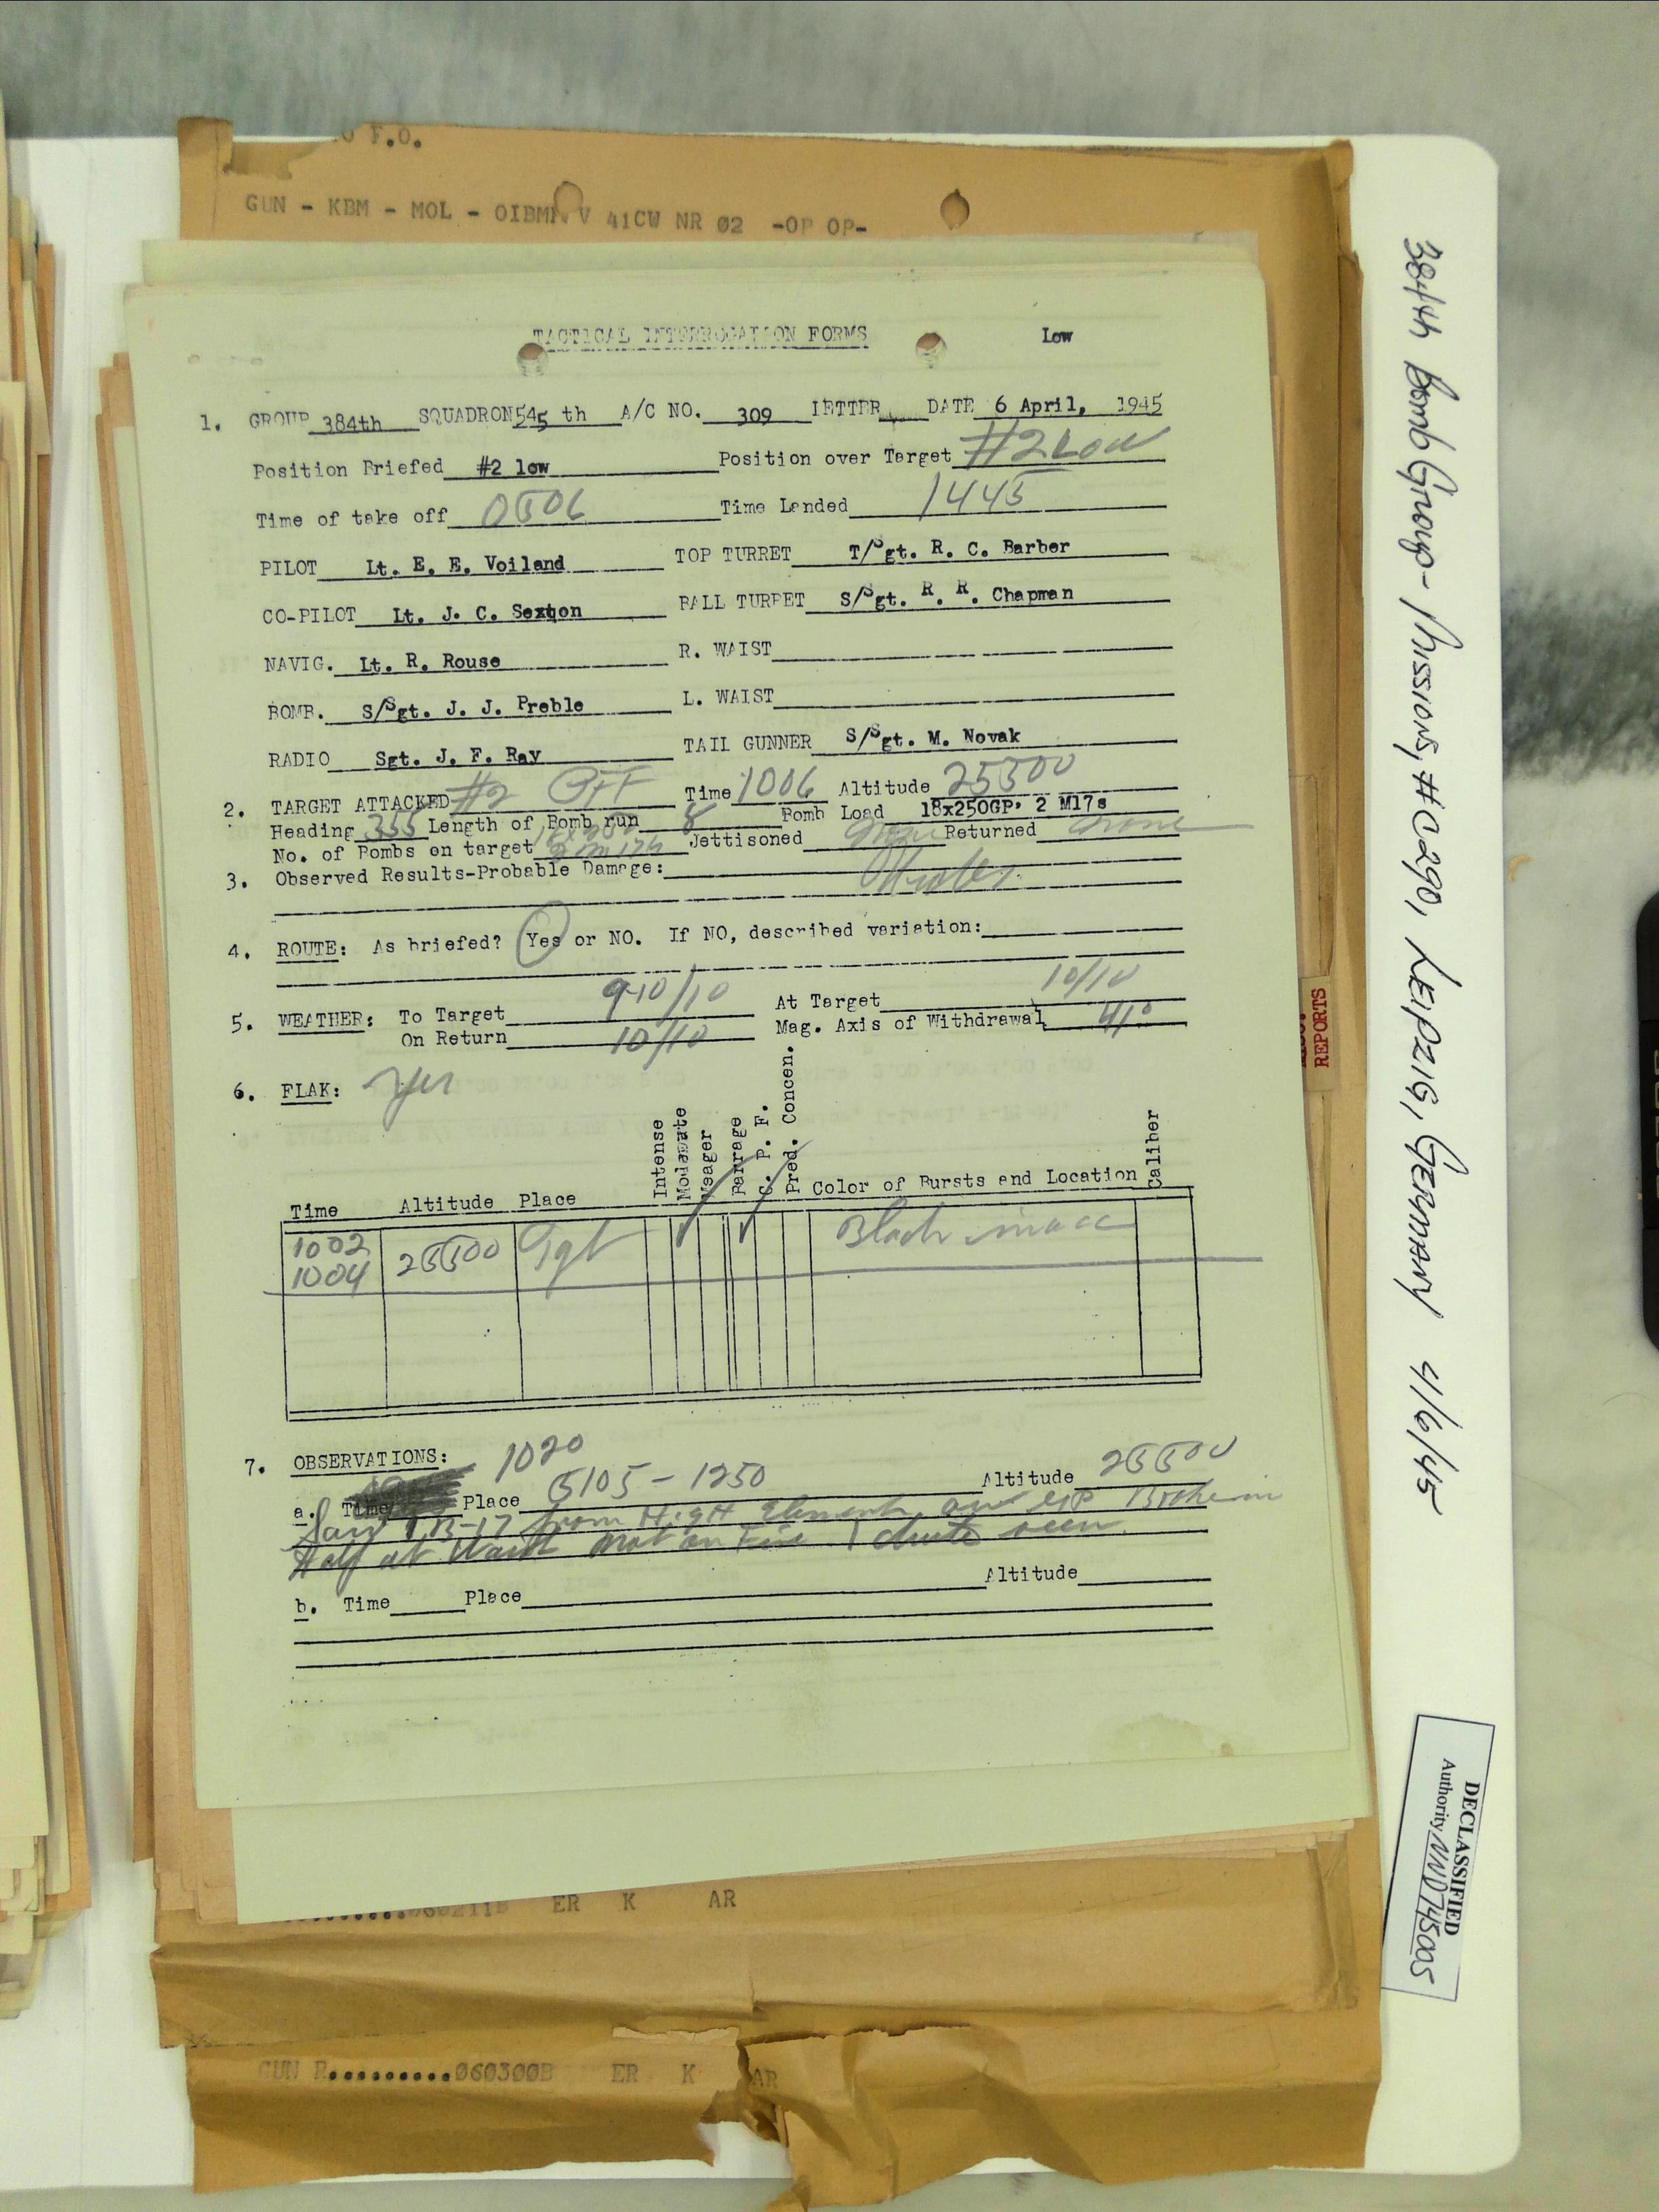 F.O.
GUN - KBM - MOL - OIBMN V 41CW NR 02 -OP OP-
TACTICAL INTERROGATION FORMS Low
1. GROUP 384th SQUADRON 545 th A/C NO. 309 LETTER DATE 6 April, 1945
Position Briefed #2 low Position over Target #2 Low
Time of take off 0606 Time Landed 1445
PILOT Lt. E. E. Voiland TOP TURRET T/Sgt. R. C. Barber
CO-PILOT Lt. J. C. Sexton BALL TURRET S/Sgt. R. R. Chapman
NAVIG. Lt. R. Rouse R. WAIST
BOMB. S/Sgt. J. J. Preble L. WAIST
RADIO Sgt. J. F. Ray TAIL GUNNER S/Sgt. M. Novak
2. TARGET ATTACKED #2 PFF Time 1006 Altitude 25500
Heading 355 Length of Bomb run 8 Bomb Load 18x250GP, 2 M17s
No. of Bombs on target 18x250 2 M17s Jettisoned None Returned None
3. Observed Results-Probable Damage:
4. ROUTE: As briefed? Yes or NO. If NO, described variation:
5. WEATHER: To Target 9-10/10 At Target 10/10
On Return 10/10 Mag. Axis of Withdrawal 41°
6. FLAK: Yes
Time Altitude Place Intense Moderate Meager Barrage C. P. F. Pred. Concen. Color of Bursts and Location Caliber
1002
1004 25500 Tgt Black inacc
7. OBSERVATIONS: 1020
a. Time Place 5105 - 1250 Altitude 25500
Saw 1 B-17 from High Element our GP Broke in
Half at Waist not on Fire 1 chute seen
b. Time Place Altitude
060211B ER K AR
GUN R..........060300B ER K AR
REPORTS
384th Bomb Group - Missions, #C290, LEIPZIG, GERMANY 4/6/45
DECLASSIFIED
Authority NND745005